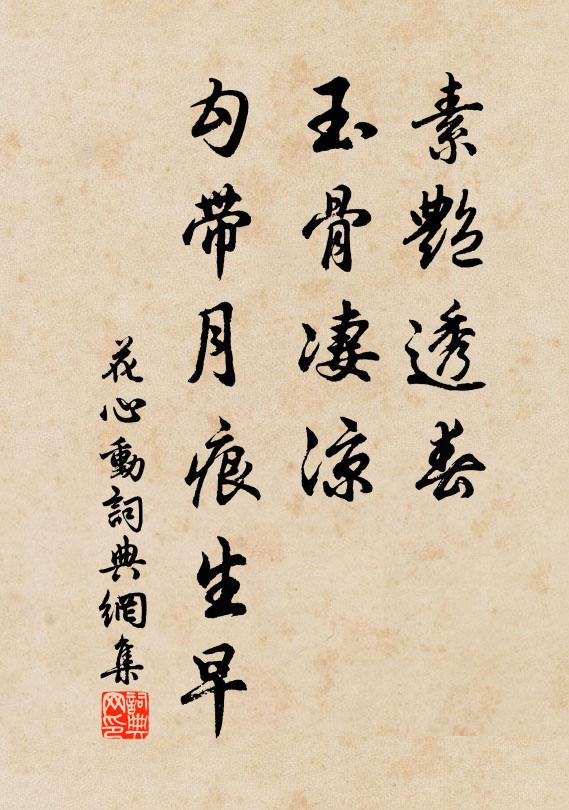 素艷透春
玉骨凄涼
勾帶月痕生早
花心動詞典網集
詞典网印